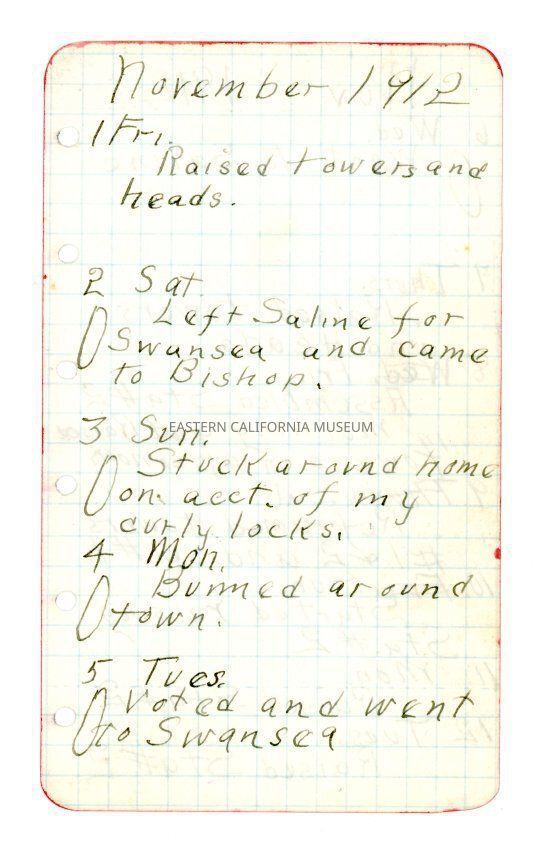 November 1912
1 Fri.
Raised towers and
heads.
2 Sat.
Left Saline for
Swansea and came
to Bishop.
3 Sun.
EASTERN CALIFORNIA MUSEUM
Stuck around home
on acct. of my
curly locks.
4 Mon.
Bummed around
town.
5 Tues.
Voted and went
to Swansea